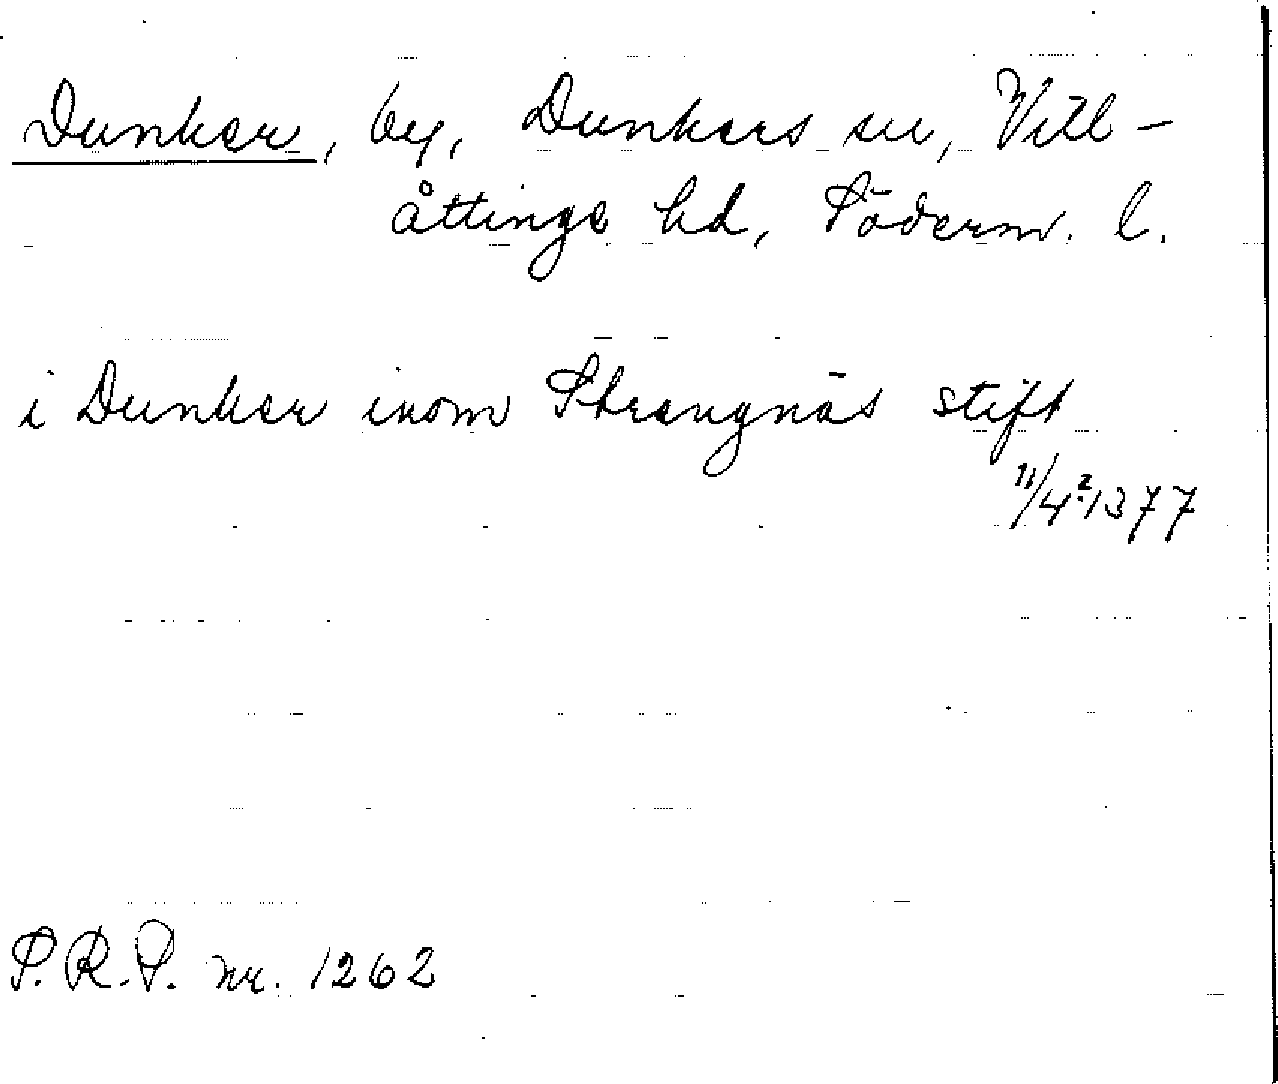 Dunker, by, Dunkers sn, Vill-
åttinge hd, Söderm. l.
i Dunker inom Strengnäs stift
11/4? 1377
S.R.P. nr. 1262